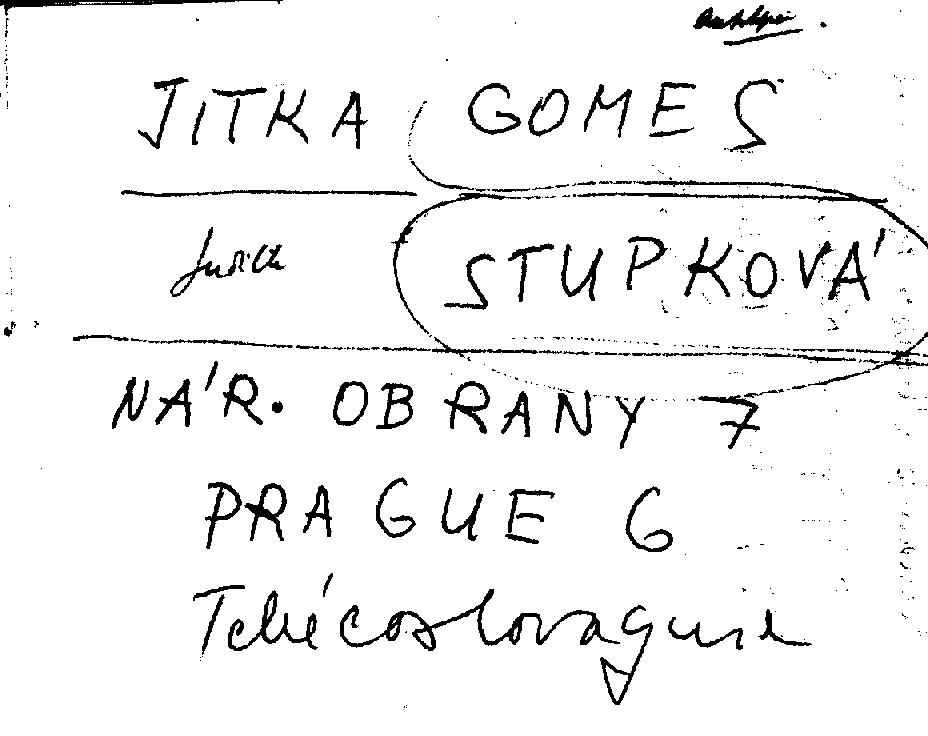 JITKA GOMES
STUPKOVÁ
NÁR. OBRANY 7
PRAGUE 6
Tchécoslovaquie